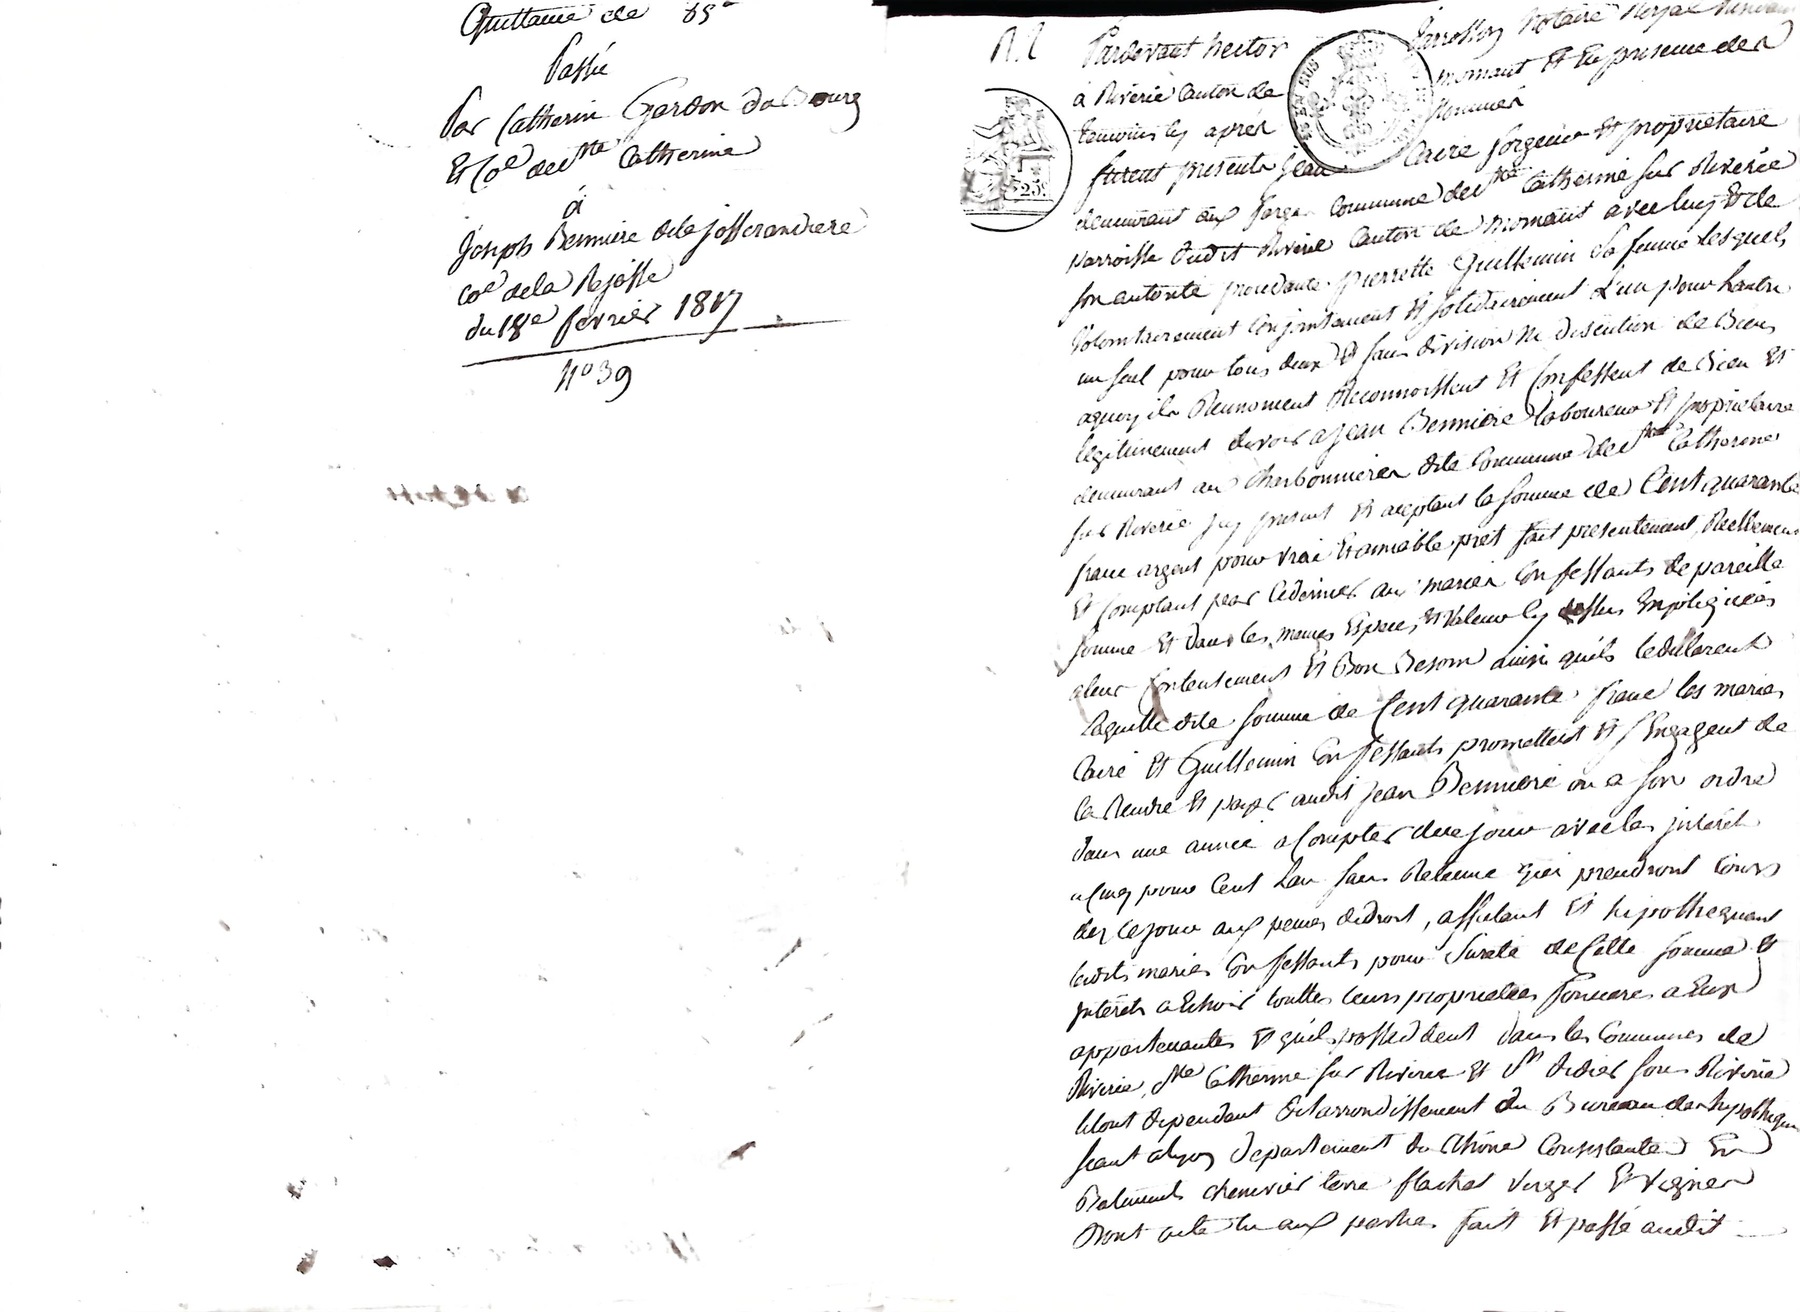 Quittance de 85
Passé
Par Catherin Gardon du Bourg
Et Co.e de Ste Catherine
à
Joseph Bennière de la josserandiere
co.e de la Rajasse
du 18e fevrier 1817
No 39
Pardevant hector
à Riverie Canton de
temoins cy aprés
furent presents jean
Notaire Royal
mornant Et En presence des
nommés
Caire forgeur Et proprietaire
demeurant aux forges Commune de Ste Catherine sur Riverie
parroisse dudit Riverie Canton de mornant avec luy Et de
son autorité procedante pierrette Guillemin sa femme lesquels
Volontairement Conjointement Et solidairement L'un pour Lautre
un seul pour tous deux Et sans division Ni discution de Biens
aquoy ils Renoncent Reconnoissent Et Confessent de Bien Et
legitimement devoir a jean Bennière laboureur Et proprietaire
demeurant au Charbonnier dite Commune de Ste Catherine
sur Riverie jcy present Et aceptant la somme de Cent quarante
franc argent pour vrai Et amiable pret fait presentement, Réellement
Et Comptant par Cedernier aux mariés Confessants de pareille
somme Et dans les memes Especes Et Valeur cy dessus Expliquées
aleur Contentement Et Bon Besoin ainsi quils le declarent
Laquelle dite somme de Cent quarante franc les mariés
Caire Et Guillemin Confessants promettent Et s'Engagent de
la Rendre Et payer audit jean Bennière ou a son ordre
dans une année a Compter de ce jour avec les jnterêt
a Cinq pour Cent Lan sans Retenue qui prendront Cours
des ce jour aux peines de droit, affectant Et hipothequant
lesdits mariés Confessants pour Sureté de Cette somme Et
jnterêts a Echoir touttes leurs proprietées foncieres a Eux
appartenantes Et quils possedent dans les Communes de
Riverie, Ste Catherine sur Riverie Et St didier sous Riverie
le tout dependant de Larrondissement du Bureau des hypotheques
seant a Lyon departement du Rhône Consistantes En
Batiments chenevier terre flachat verger Et vignes
Dont acte lu aux parties fait Et passé audit